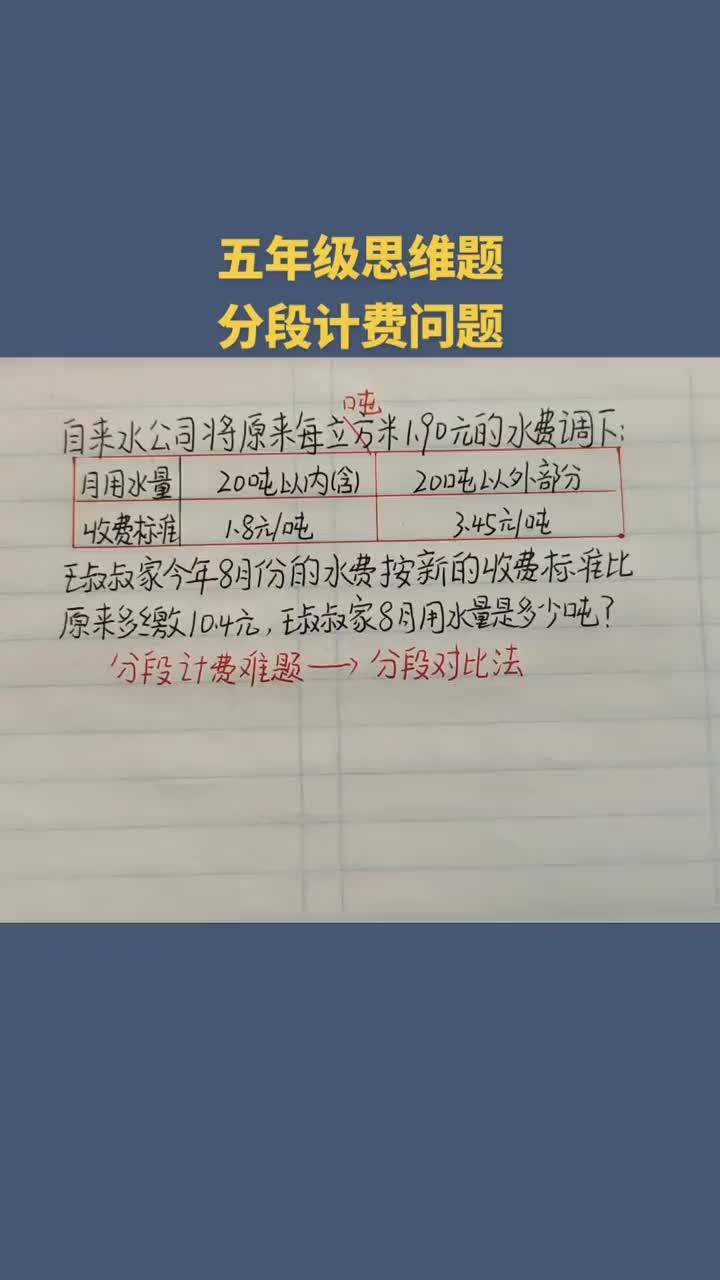 五年级思维题
分段计费问题
吨
自来水公司将原来每立方米1.90元的水费调下:
月用水量 20吨以内(含) 20吨以外部分
收费标准 1.8元/吨 3.45元/吨
王叔叔家今年8月份的水费按新的收费标准比
原来多缴10.4元,王叔叔家8月用水量是多少吨?
分段计费难题→分段对比法